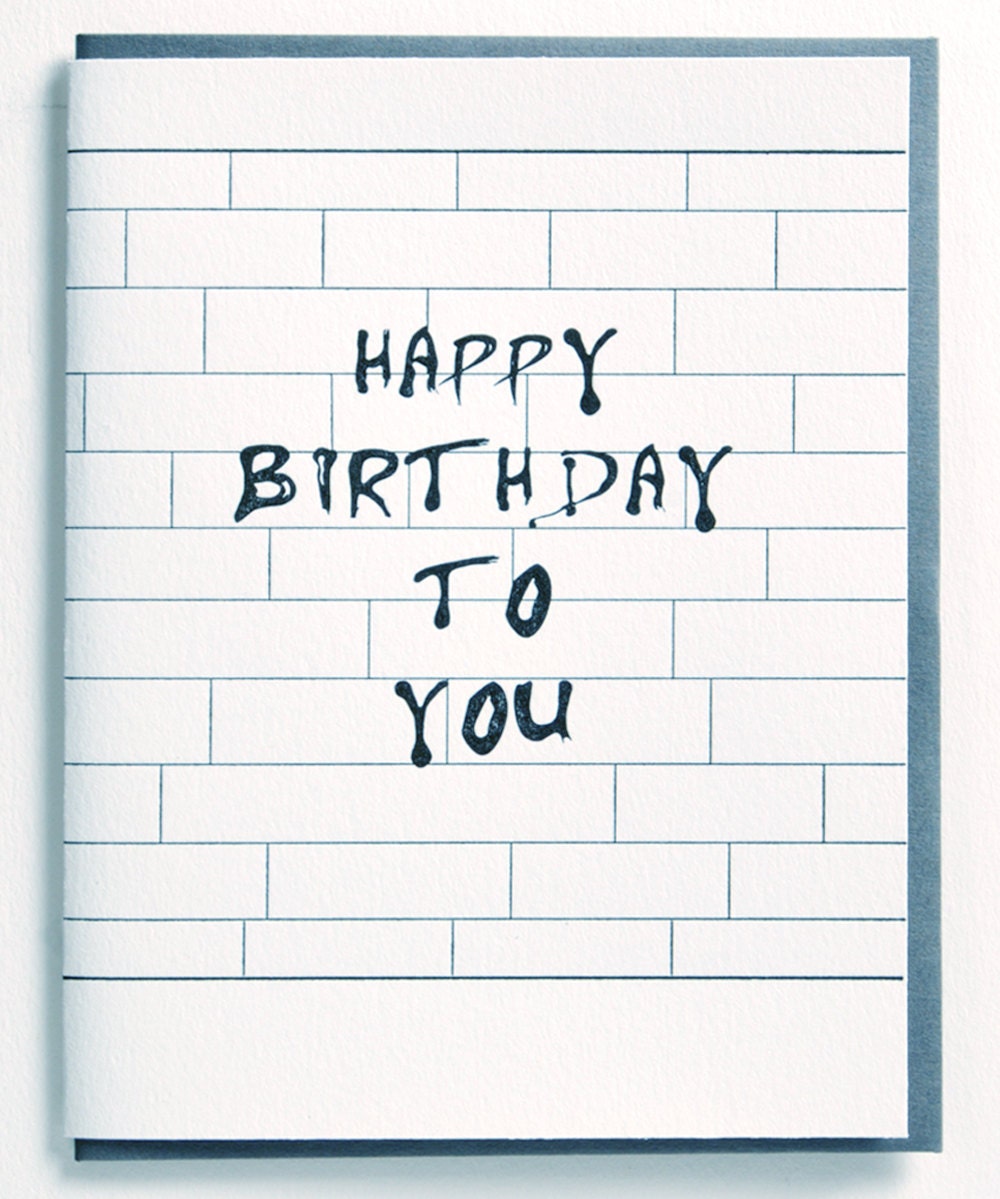 HAPPY
BIRTHDAY
TO
YOU